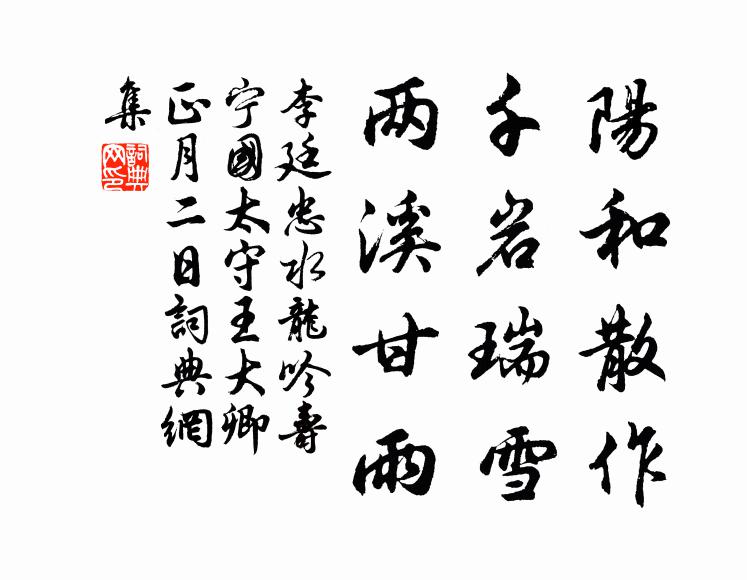 陽和散作
千岩瑞雪
兩溪甘雨
李廷忠水龍吟壽
宁國太守王大卿
正月二日詞典網
集
詞典網印